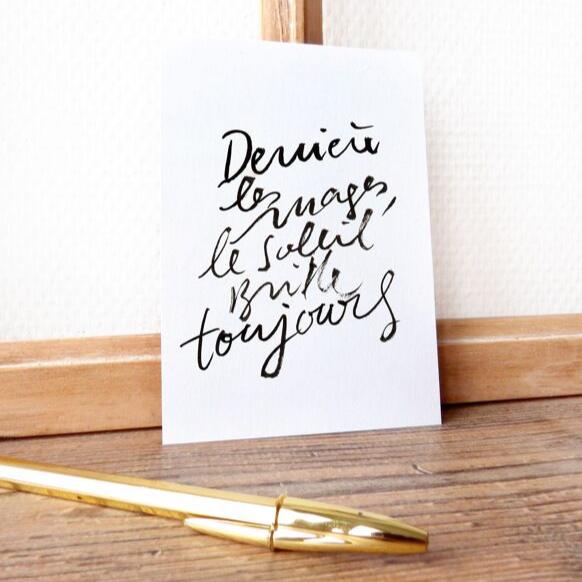 Derrière
les nuages,
le soleil
Brille
toujours